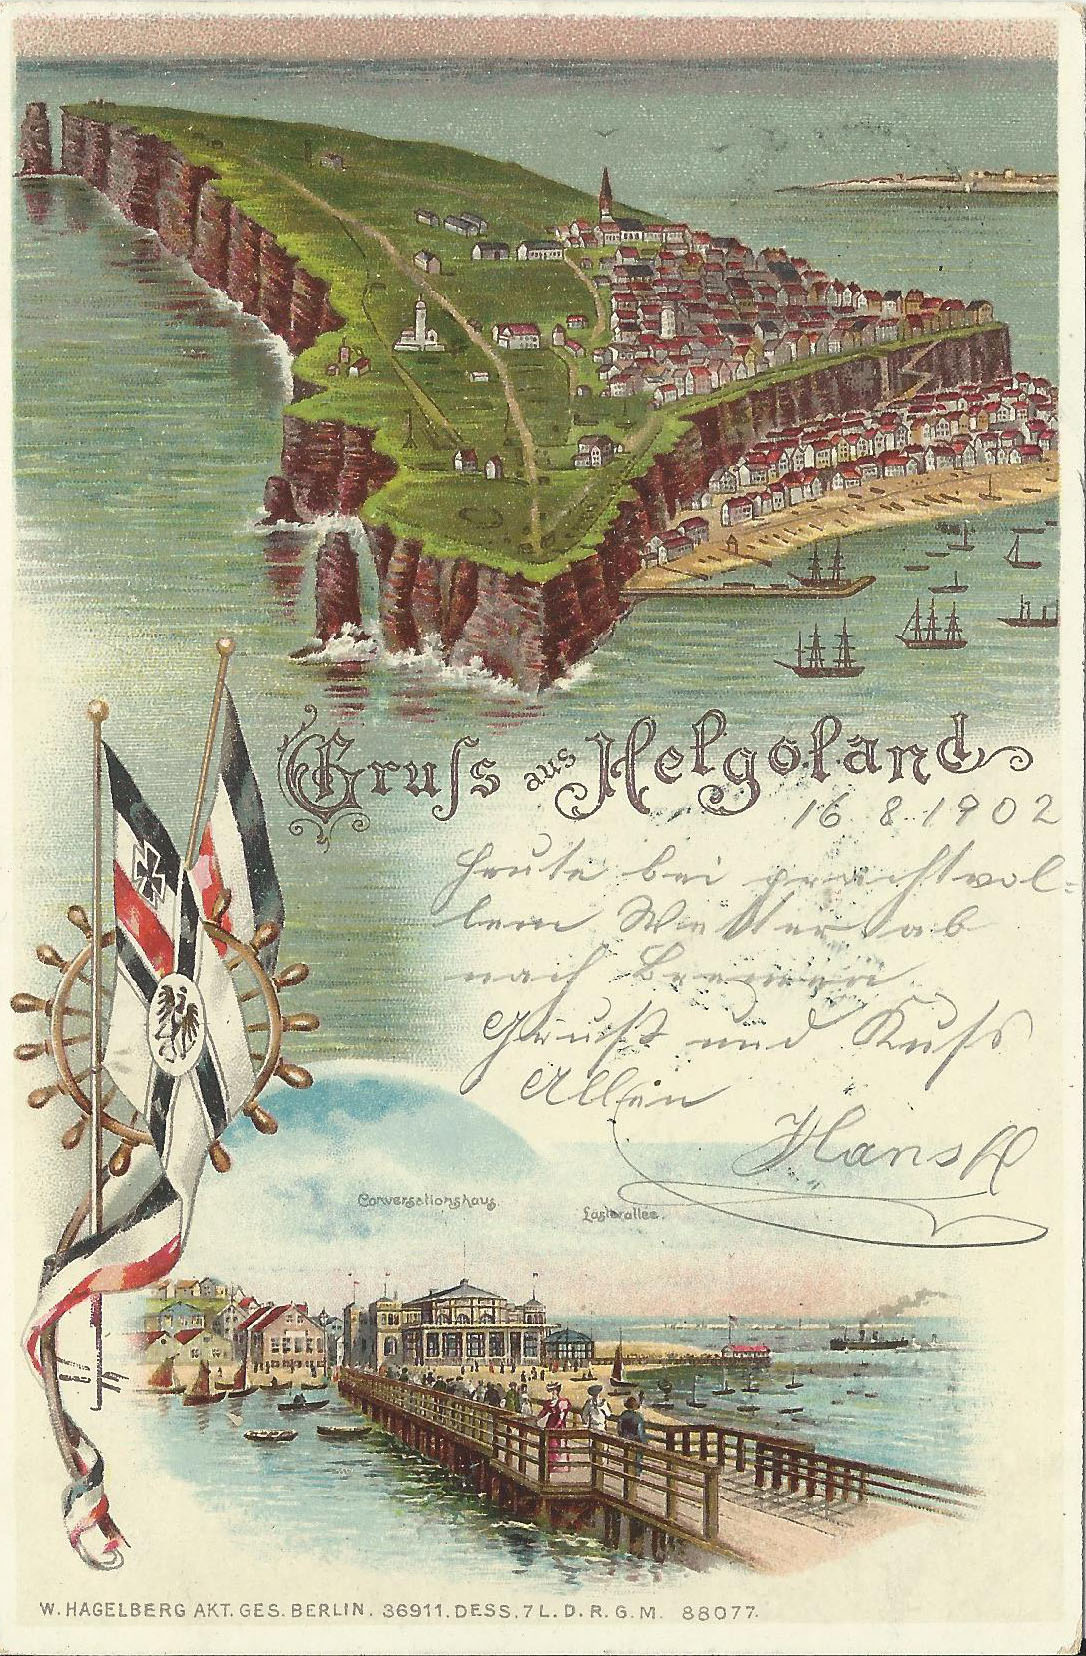 Gruſs aus Helgoland
16 8. 1902
Heute bei prachtvol-
lem Wetter ab
nach Bremen.
Gruß und Kuſs
Allen
Hans
Conversationshaus.
Lästerallee.
W. HAGELBERG AKT. GES. BERLIN. 36911. DESS. 7 L. D. R. G. M. 88077.